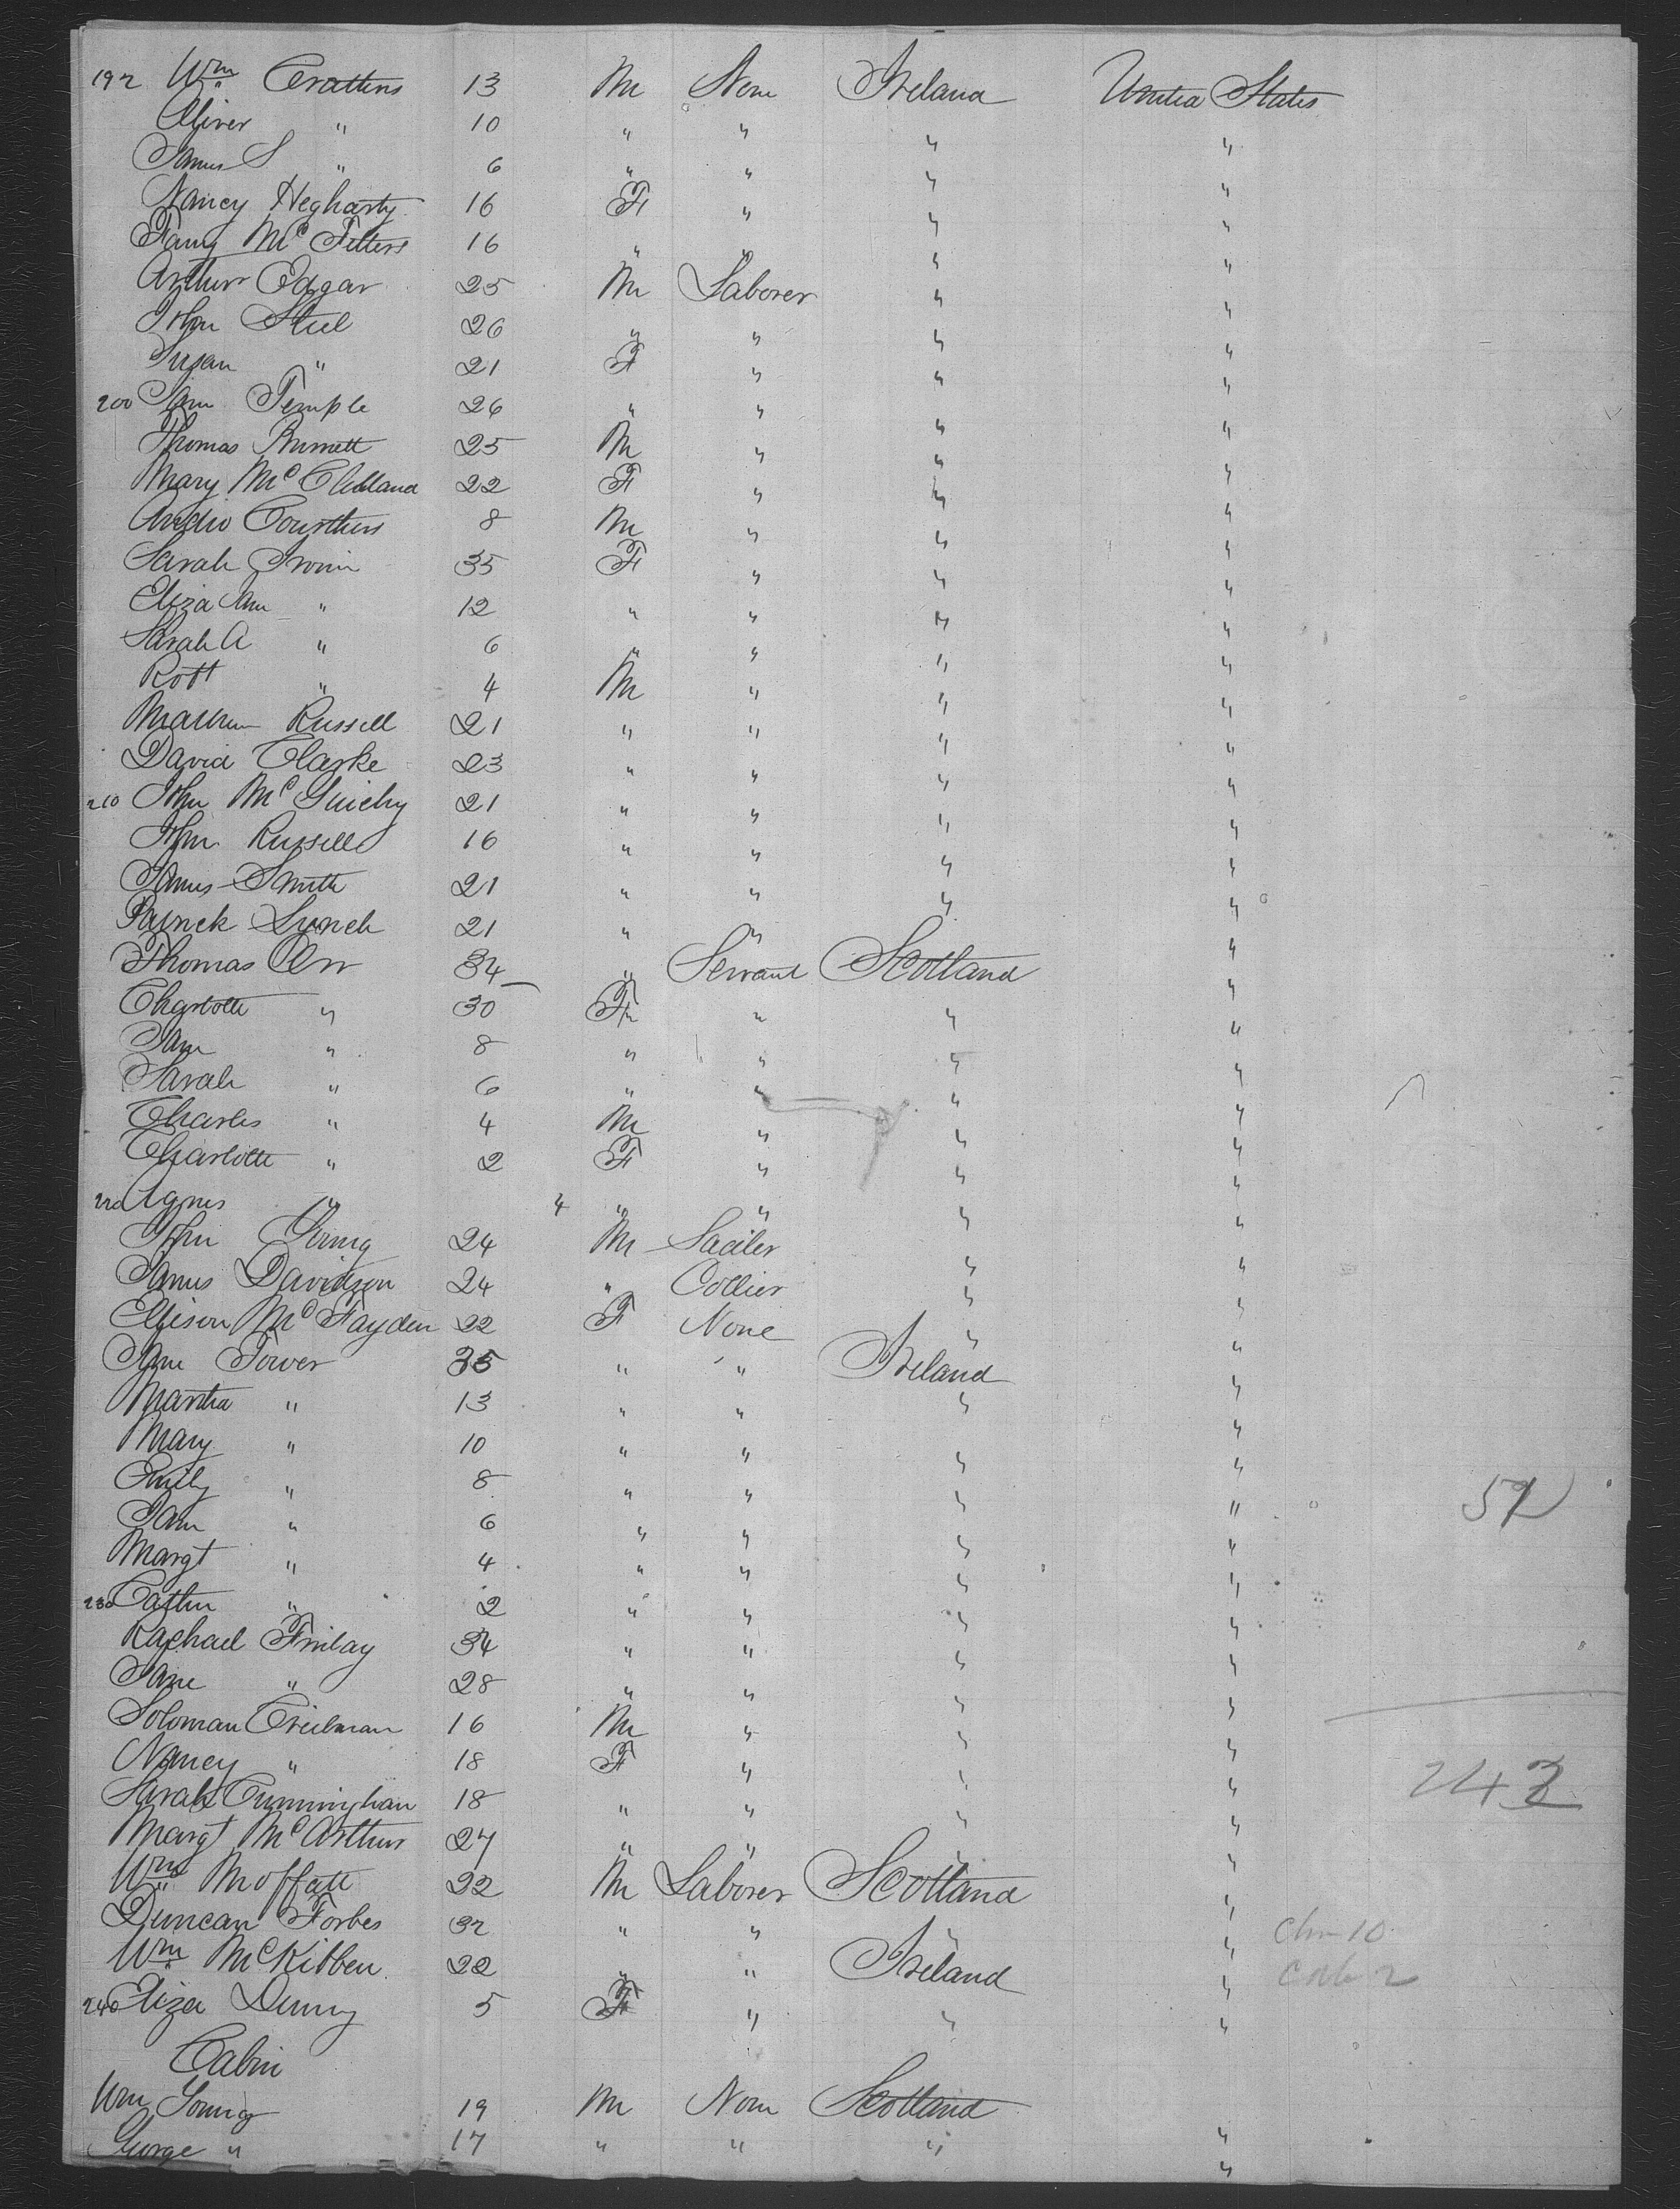 192 Wm Crattens 13 M None Ireland United States
Oliver " 10 " " " "
James S " 6 " " " "
Nancy Hegharty 16 F " " "
Fany McFetters 16 " " " "
Arthur Edgar 25 M Laborer " "
John Steel 26 " " " "
Susan " 21 F " " "
200 Jane Temple 26 " " " "
Thomas Burnett 25 M " " "
Mary McClelland 22 F " " "
8 M " " "
Sarah Irwin 35 F " " "
Eliza Jane " 12 " " " "
Sarah A " 6 " " " "
Robt " 4 M " " "
Matthew Russell 21 " " " "
David Clarke 23 " " " "
210 John Mc 21 " " " "
John Russell 16 " " " "
James Smith 21 " " " "
Patrick Lynch 21 " " " "
Thomas Orr 34 " Servant Scotland "
Charlotte " 30 F " " "
Jane " 8 " " " "
Sarah " 6 " " " "
Charles " 4 M " " "
Charlotte " 2 F " " "
220 Agnes " 4 " " " "
John Young 24 M Sadler " "
James Davidson 24 " Collier " "
Ellison McFayden 22 F None " "
Jane Tower 35 " " Ireland "
Martha " 13 " " " "
Mary " 10 " " " "
Emily " 8 " " " "
Jane " 6 " " " "
Margt " 4 " " " "
230 Cathn " 2 " " " "
Rachael Finlay 34 " " " "
Jane " 28 " " " "
Soloman Creilman 16 M " " "
Nancy " 18 F " " "
Sarah Cunningham 18 " " " "
Margt McArthur 27 " " " "
Wm Moffatt 22 M Laborer Scotland "
Duncan Forbes 32 " " " "
Wm McKibben 22 " " Ireland "
240 Eliza Denny 5 F " " "
Cabin
Wm Young 19 M None Scotland "
George " 17 " " " "
242